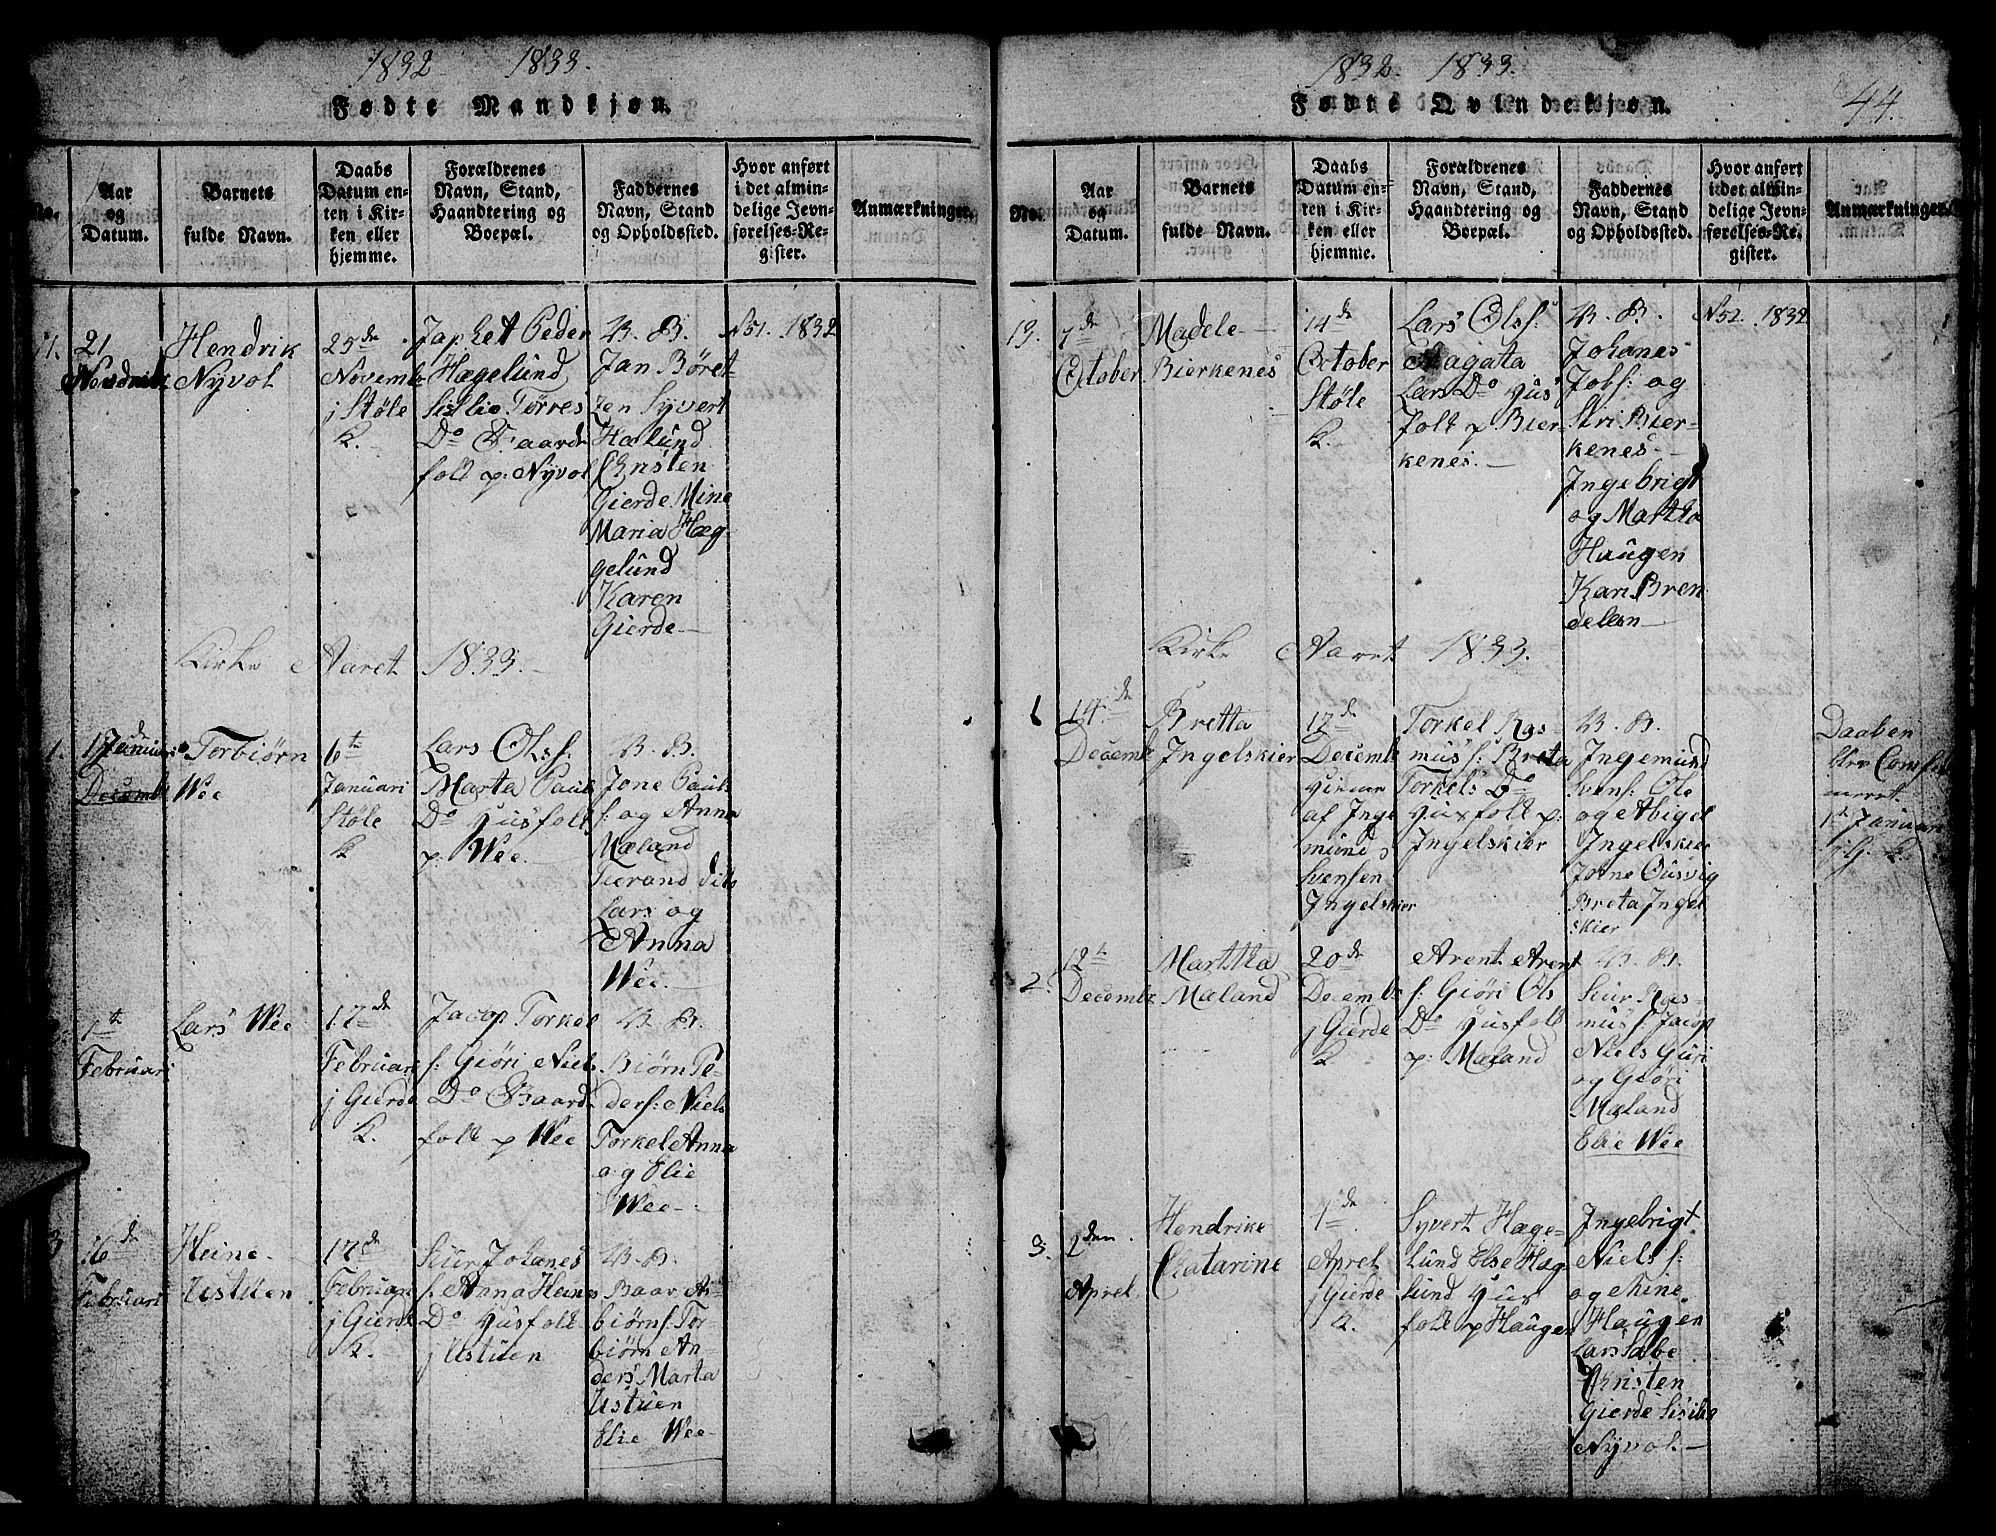 1832 1833.
Fødte Mandkjøn.
No.
Aar og Datum.
Barnets fulde Navn.
Daabs Datum enten i Kirken eller hjemme.
Forældrenes Navn, Stand, Haandtering og Boepæl.
Faddernes Navn, Stand og Opholdssted.
Hvor anført i det almindelige Jevnførelses-Register.
Anmærkninger.
21
Hendrik
Nyvol
25de
Novembr
j Støle
K.
Japhet Peder
Hægelund
Sislie Tørres
Do Baards
folk p: Nyvol
B. B.
Jan Børet
zen Syvert
Hælund
Christen
Gierde Mine
Maria Hæg
gelund
Karen
Gierde
N51. 1832
Kirke Aaret 1833.
1.
Januari
Decembr
Torbiørn
Wee
6th
Januari
Støle
K
Lars Olsf:
Marta Pauls
Do Husfolk
p. Wee
B. B.
Jone Pauls
f: og Anna
Mæland
Tierand dito
Lars og
Anna
Wee.
1th
Februari
Lars Wee
17de
Februari
j Gierde
K.
Jacop Torkel
f: Giøri Niels
Do Baard
folk p Wee
B. B.
Biørn Pe
dersf: Niels
Torkel Anna
og Elie
Wee
3
16de
Februari
Heine
Ustuen
17de
Februari
j Gierde
K.
Siur Johanes
f. Anna Heines
Do Husfolk
j Ustuen
B. B.
Baar As
biørnf. Tor
biørn An
ders Marta
Ustuen
Elie Wee
1832. 1833.
44.
Fødte Qvindekjøn.
No.
Aar og Datum.
Barnets fulde Navn.
Daabs Datum enten i Kirken eller hjemme.
Forældrenes Navn, Stand, Haandtering og Boepæl.
Faddernes Navn, Stand og Opholdssted.
Hvor anført i det almindelige Jevnførelses-Register.
Anmærkninger.
13.
7de
October
Madele
Bierkenes
14de
October
Støle
K.
Lars Olsf:
Magata
Lars Do Hus
folk p Bier
kenes.
B. B.
Johanes
Jobsf: og
Siri Bier
kenes.
Ingebrigt
og Martha
Haugen
Kari Bren
delen
N52. 1832
Kirke Aaret 1833.
1
14de
Decembr
Bretta
Ingelskier
17de
Decembr
Hieme
af Inge
mund
Svensen
Ingelskier
Torkel Ras
mus f: Breta
Torkels Do
Husfolk p:
Ingelskier
B. B.
Ingemund
Svenf: Ole
og Abigel
Ingelskier
Jone Ousvig
Breta Ingel
skier
Daaben
blev Confir
meret
1t Januari
j G. K.
2.
12th
Decembr
Marttha
Mæland
20de
Decembr
j Gierde
K
Arent Arent
f: Giøri Ols
Do Husfolk
p: Mæland
B. B.
Siur Ras
mus f: Jacop
Niels Guri
og Giøri
Mæland
Elie Wee
3.
2den
Aprel.
Hendrike
Chatarine
4de
Aprel
j Gierde
K.
Syvert Hæge
lund Else Hæg
lund Hus
folk p Haugen
Ingebrigt
Niels f:
og Kine
Haugen
Lars Sæbe
Kristen
Gierde Sislie
Nyvol